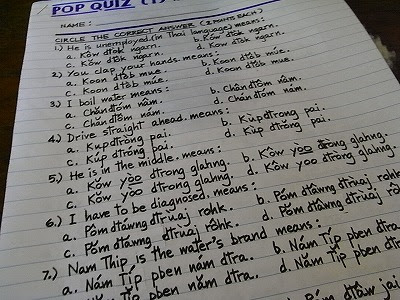 POP QUIZ (1)
NAME:
CIRCLE THE CORRECT ANSWER (2 POINTS EACH)
1.) He is unemployed.(in Thai language) means:
a. Kôw dtòk ngarn. b. Kôw dtòk ngarn.
c. Kôw dtòk ngarn. d. Kow dtòk ngarn.
2.) You clap your hands. means:
a. Koon dtòb mue. b. Koon dtòb mue.
c. Koon dtòb mue. d. Koon dtòb mue.
3.) I boil water means:
a. Chăn dtôm nâm. b. Chăn dtôm nâm.
c. Chăn dtôm nâm. d. Chăn dtôm nâm.
4.) Drive straight ahead. means:
a. Kup dtrong pai. b. Kùp dtrong pai.
c. Kúp dtrŏng pai. d. Kúp dtrŏng pai.
5.) He is in the middle. means:
a. Kŏw yòo dtrong glahng. b. Kôw yoo dtrong glahng.
c. Kôw yòo dtrong glahng. d. Kôw yoo dtrong glahng.
6.) I have to be diagnosed. means:
a. Pŏm dtâwng dtrùaj rohk. b. Póm dtâwng dtrùaj rohk
c. Pôm dtâwng dtruaj rôhk. d. Pŏm dtâwng dtrùaj rohk
7.) Nam Thip is the water's brand means:
a. Nám Típ pben nám dtra. b. Nám Típ pben dtra
c. Nám Típ pben nám dtra. d. Năm Típ pben dtra